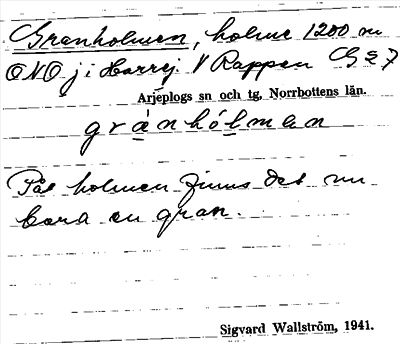 Granholmen, holme 1200 m
ONO j i Horrej V Rappen G27
Arjeplogs sn och tg, Norrbottens län.
grànhólmen
På holmen finns det nu
bara en gran.
Sigvard Wallström, 1941.